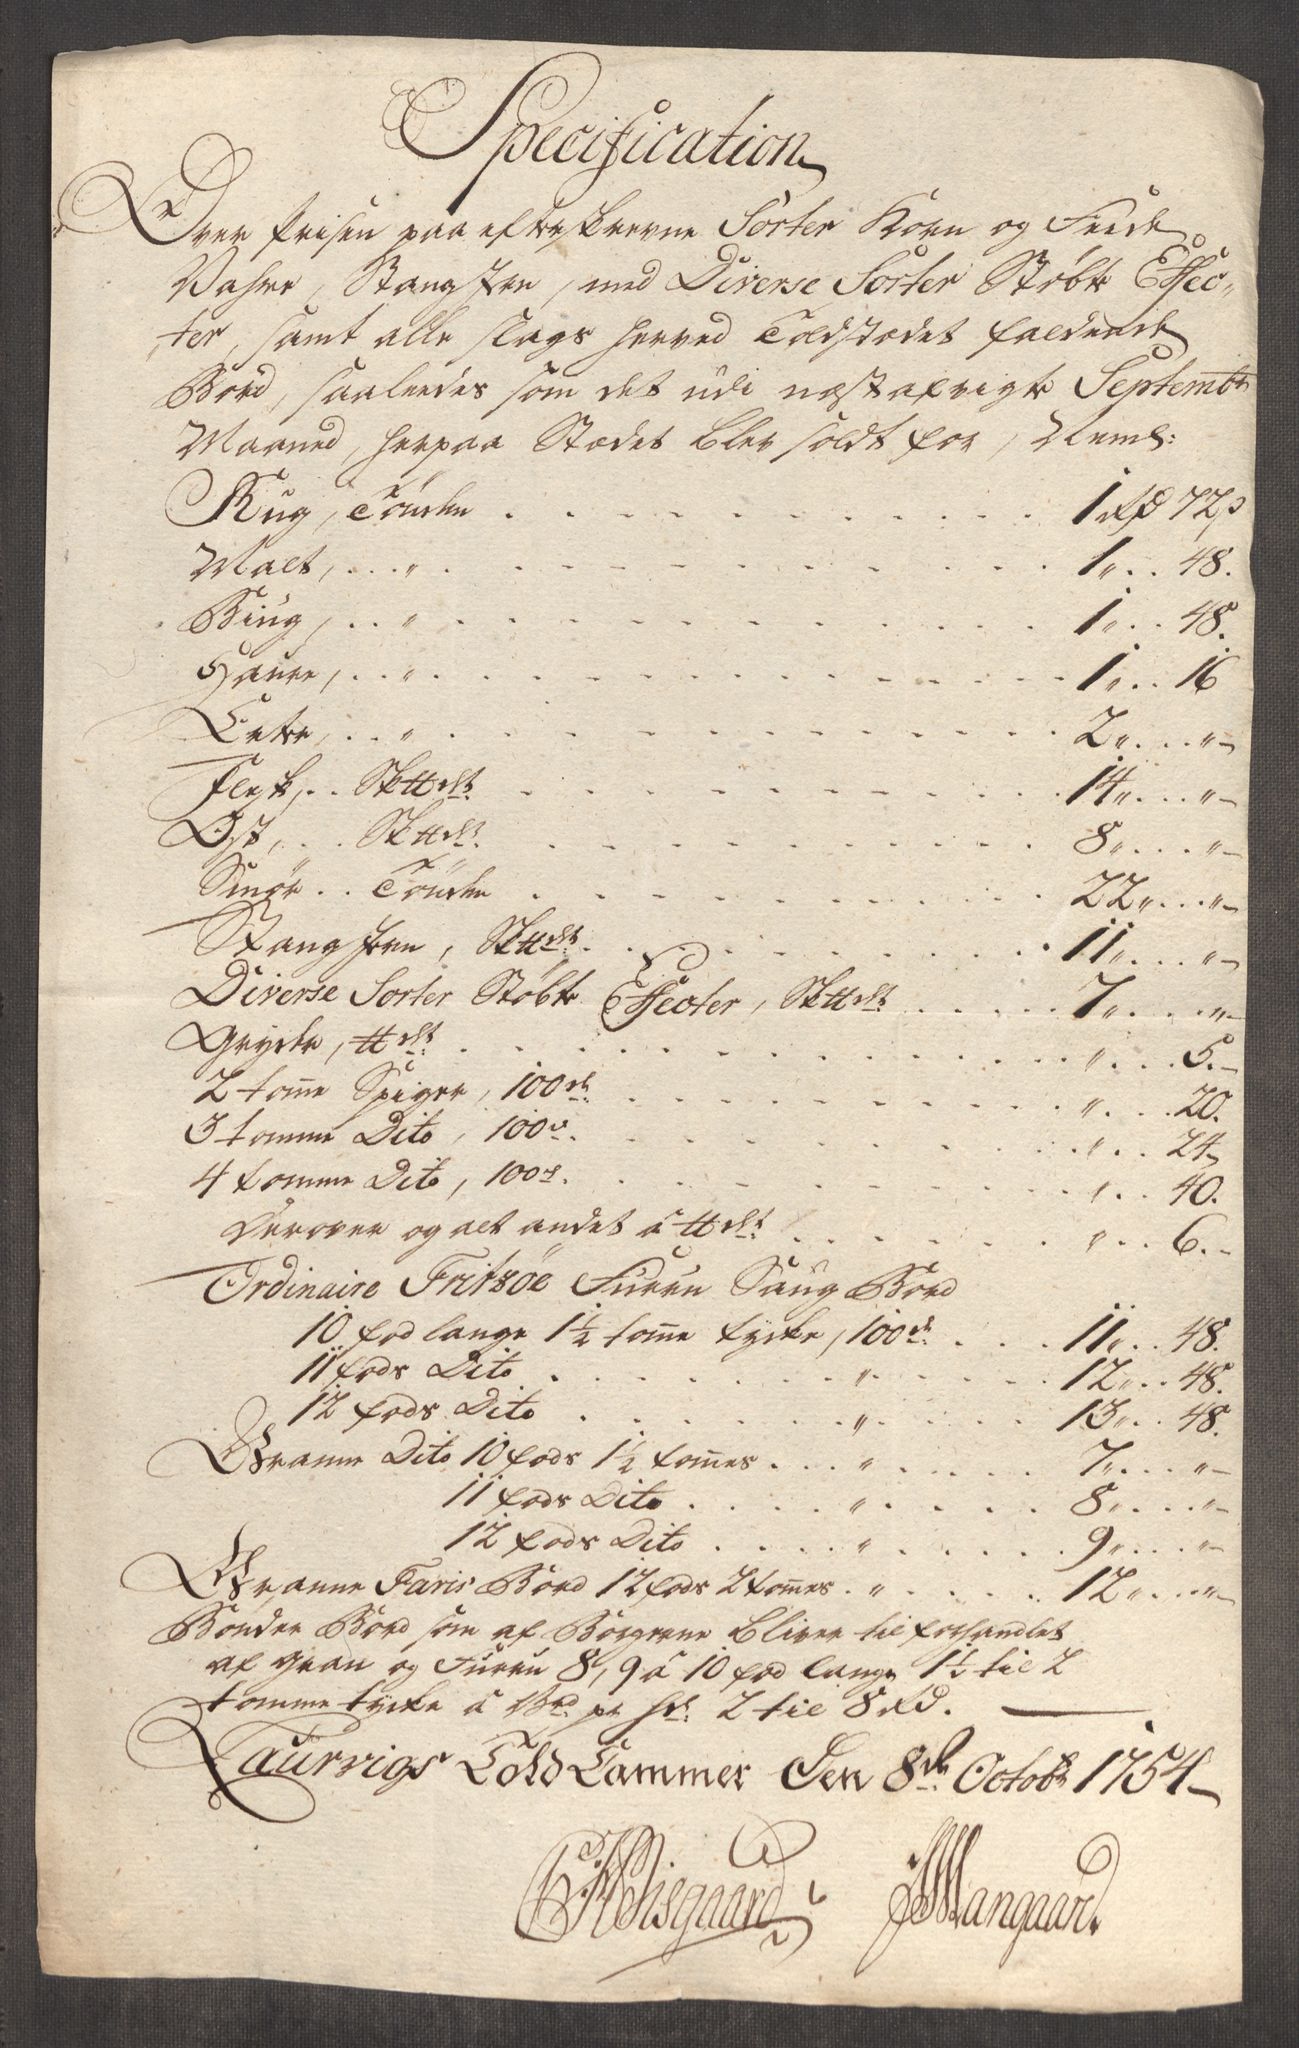 Specification
Over Prisen paa efterskrevne Sorter Korn og Feede
Vahre, Stang Jern, med Diverse Sorter Støbte Effec-
ter, samt alle slags herved Toldstædet faldende
Bord, saaleedes som det udi næstafvigte Septembr
Maaned, herpaa Stædet blev soldt for, Neml:
Rug, Tønden . . . 1 rd 72 s
Malt, . . . " . . . 1 " . . 48.
Biug, . . " . . . 1 " . . 48.
Haure, . . " . . . 1 " . . 16
Erter, . . " . . . 2 " . . . " -
Flesk, . . Sk℔dt . . . 14 " . . . " -
Ost, . . Sk℔dt . . . 8 " . . . " -
Smør . . Tønden . . . 22 " . . . " -
Stang Jern, Sk℔dt . . . 11 " . . . " -
Diverse Sorter Støbte Effecter, Sk℔dt . . . 7 " . . . " -
Gryder, ℔dt . . . " . . . 5. -
2 tom̄e Spiger, 100de . . . " . . . 20.
3 tomme Dito, 100de . . . " . . 24
4 tomme Dito, 100de . . . " . . 40.
Derover og alt andet á ℔dt . . . " . . 6. -
Ordinaire Fritzøe Furru Saug Bord
10 fod lange 1½ tom̄e tycke, 100de . . . 11 " . . 48.
11 fods Dito . . . " . . . 12 " . . 48.
12 fods Dito . . . " . . . 13 " . . 48.
Granne Dito 10 fods 1½ tom̄es . . . " . . . 7 " . . . " -
11 fods Dito . . . " . . . 8 " . . . " -
12 fods Dito . . . " . . . 9 " . . . " -
Granne Faris Bord 12 fods 2 tom̄es . " . . . 12 " . . . " -
Bonder Bord som af Borgerne bliver tilforhandlet
af gran og Furru 8, 9 á 10 fod lange 1½ til 2
tomme tycke á pr hd: 2 til 8 rd.
Laurvigs Told Cammer Den 8de Octobr 1754
Wangaard.